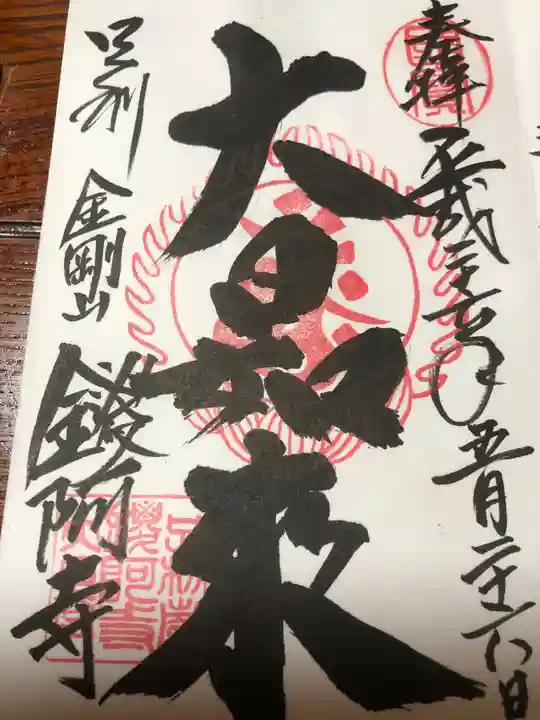 奉拝 平成 年五月二十六日
大日如来
足利 金剛山 鑁阿寺